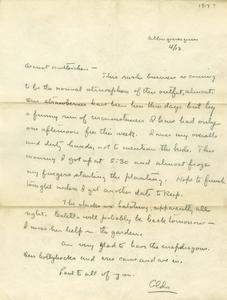 1937?
Albuquerque
4/13
Dearest motherkin -
This rush business is coming
to be the normal atmosphere of this outfit, almost.
Our strawberries have been here three days but by
a funny run of circumstances I have had only
one afternoon free this week. I miss my
and dirty hands, not to mention the hole. This
morning I got up at 5:30 and almost froze
my fingers starting the planting. Hope to finish
tonight unless I get another date to keep.
The ducks are hatching, apparently all
right. will probably be back tomorrow -
I miss her help in the garden.
Am very glad to have the snapdragons.
Our hollyhocks and are in.
Love to all of you.